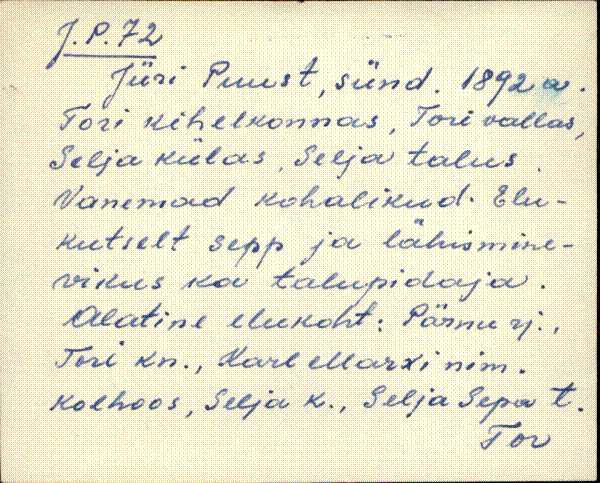 J.P.72
Jüri Puust, sünd. 1892 a.
Tori kihelkonnas, Tori vallas,
Selja külas, Selja talus.
Vanemad kohalikud. Elu-
kutselt sepp ja lähismine-
vikus ka talupidaja.
Alatine elukoht: Pärnu rj.,
Tori kn., Karl Marxi nim.
kolhoos, Selja k., Selja Sepa t.
Tor